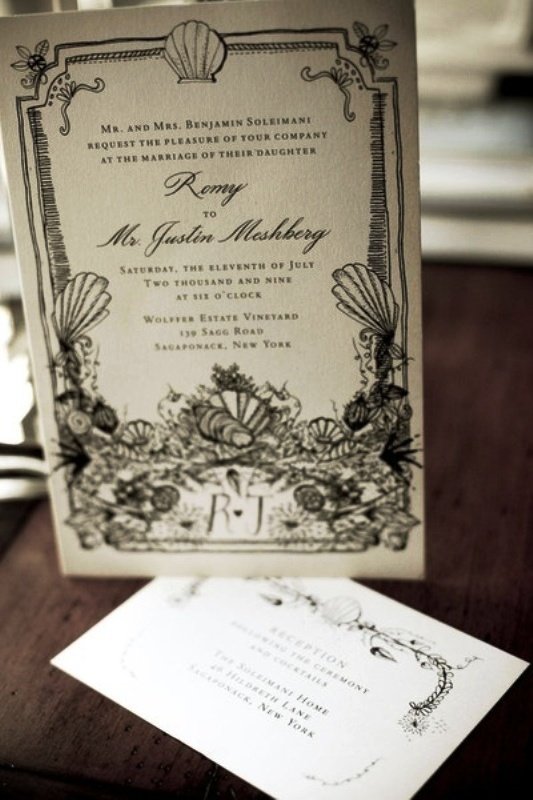 Mr. and Mrs. Benjamin Soleimani
request the pleasure of your company
at the marriage of their daughter
Romy
to
Mr. Justin Meshberg
Saturday, the eleventh of July
Two thousand and nine
at six o'clock
Wolffer Estate Vineyard
139 Sagg Road
Sagaponack, New York
R ♥ J
Reception
following the ceremony
and cocktails
The Soleimani Home
46 Hildreth Lane
Sagaponack, New York